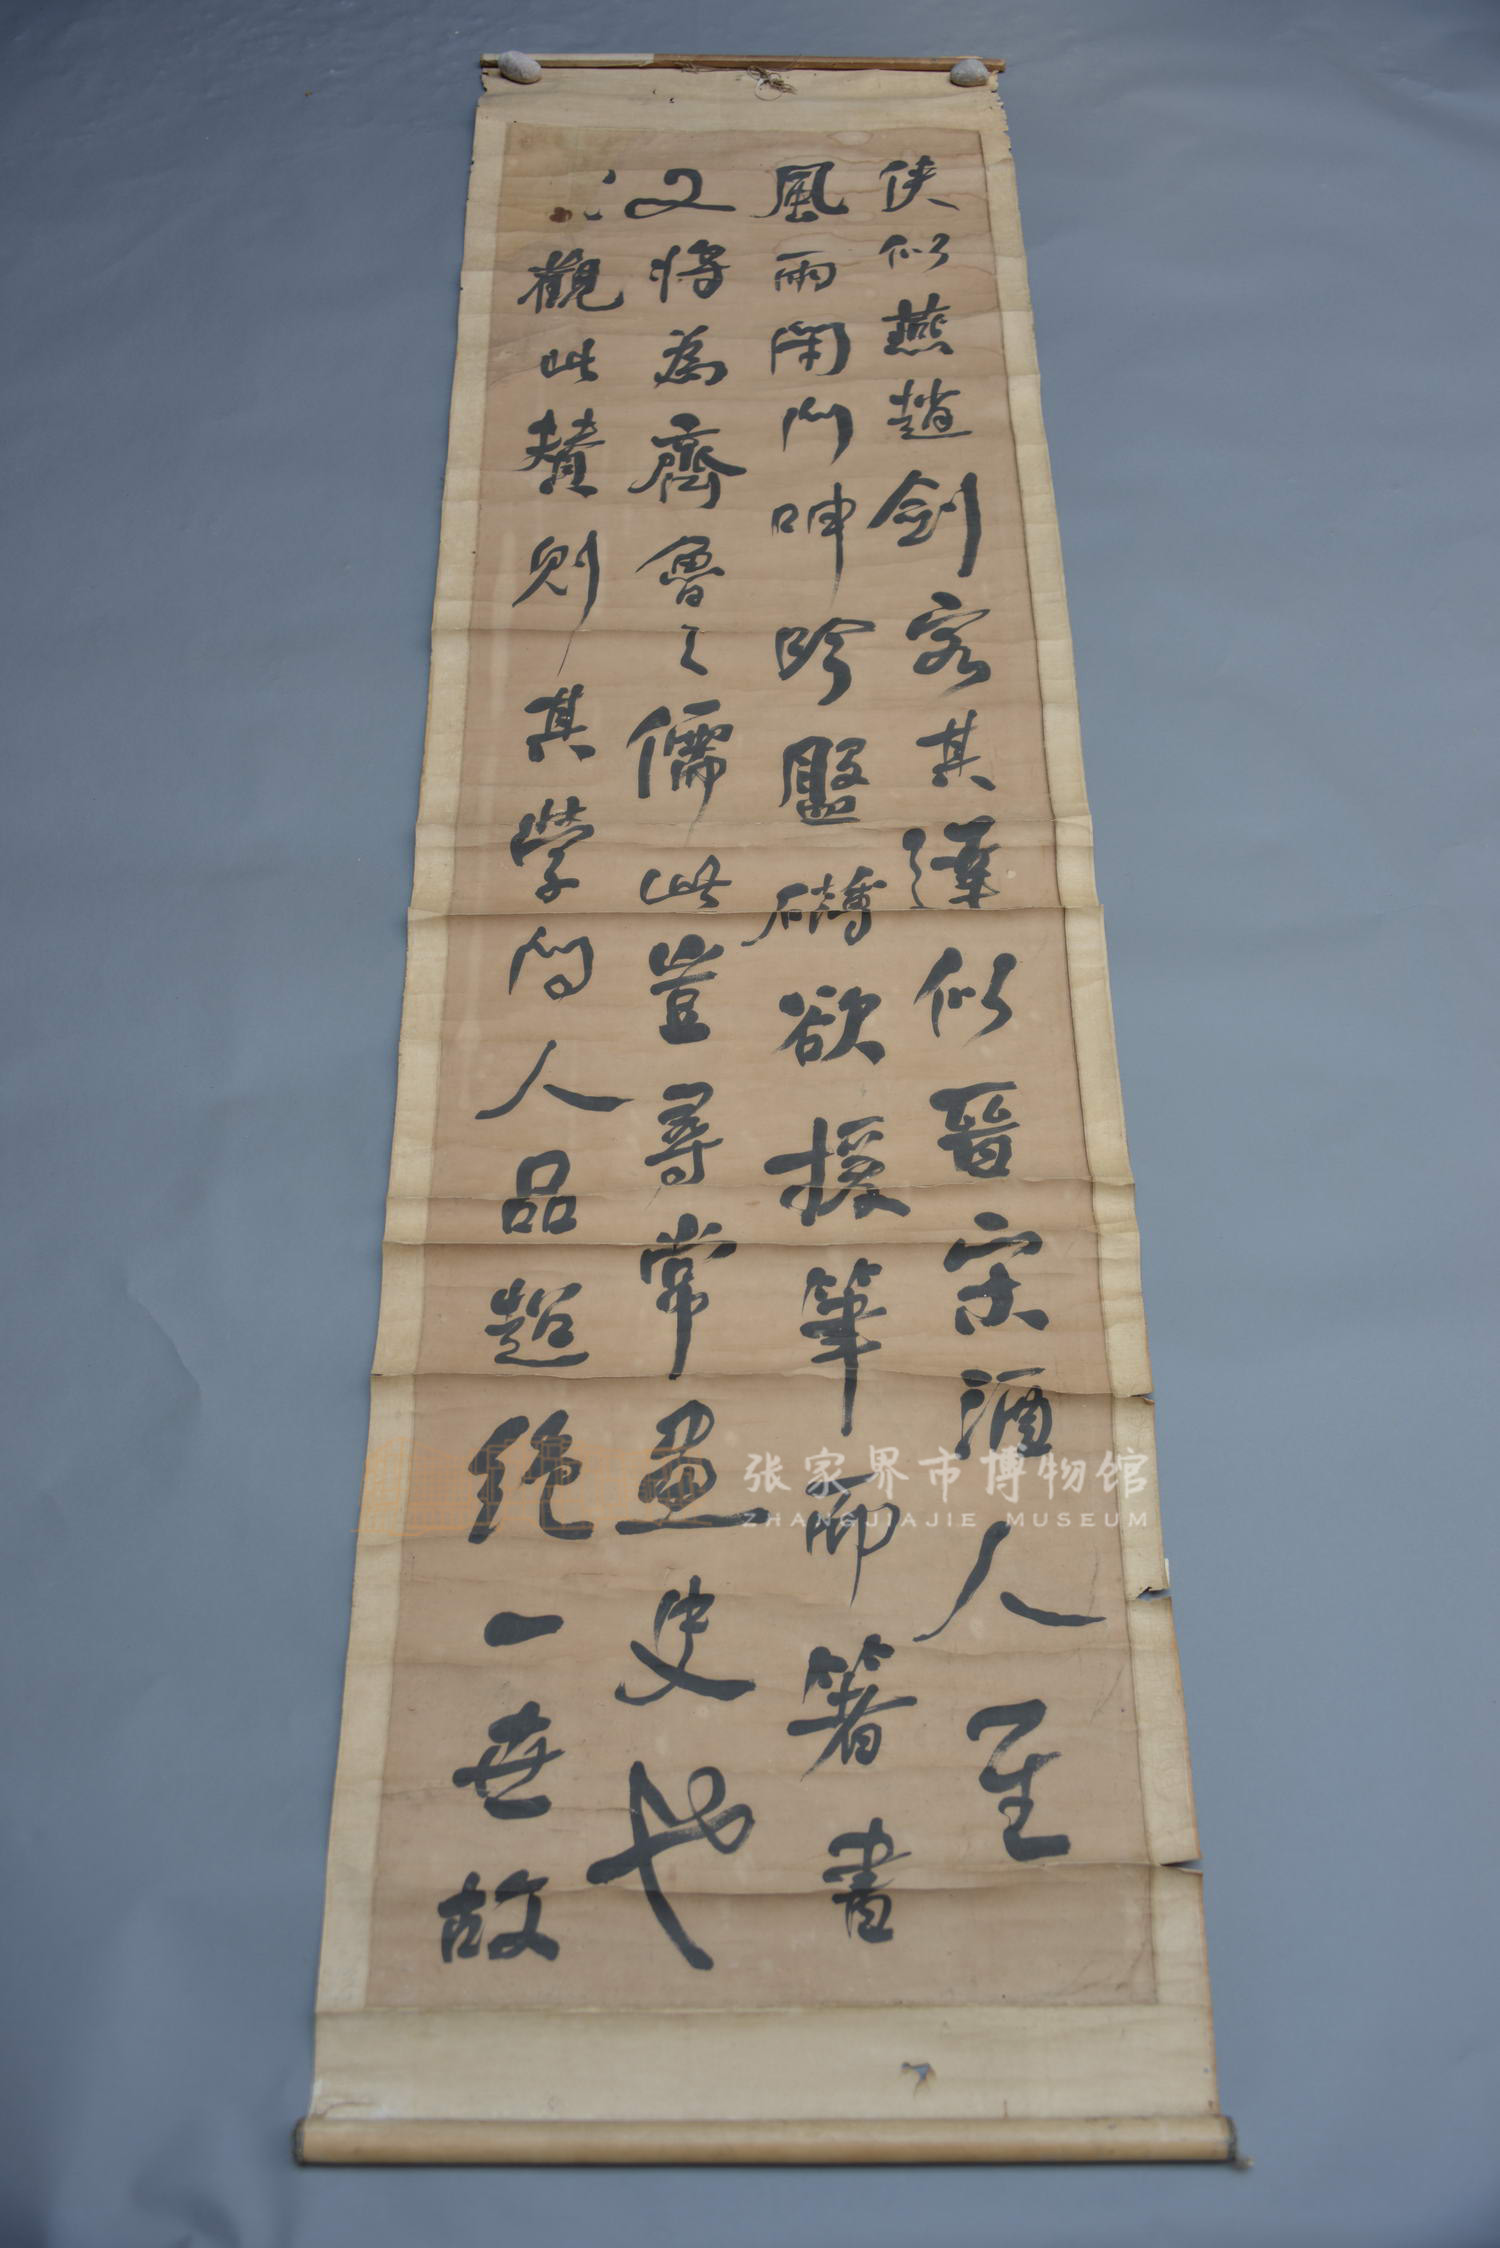 侠似燕趙劍客其達似晉宋酒人至
風雨閉門呻吟盤礴欲援筆而著書
又將為齊魯之儒此豈尋常畫史也
觀此贊則其學問人品超絕一世故
张家界市博物馆
ZHANGJIAJIE MUSEUM